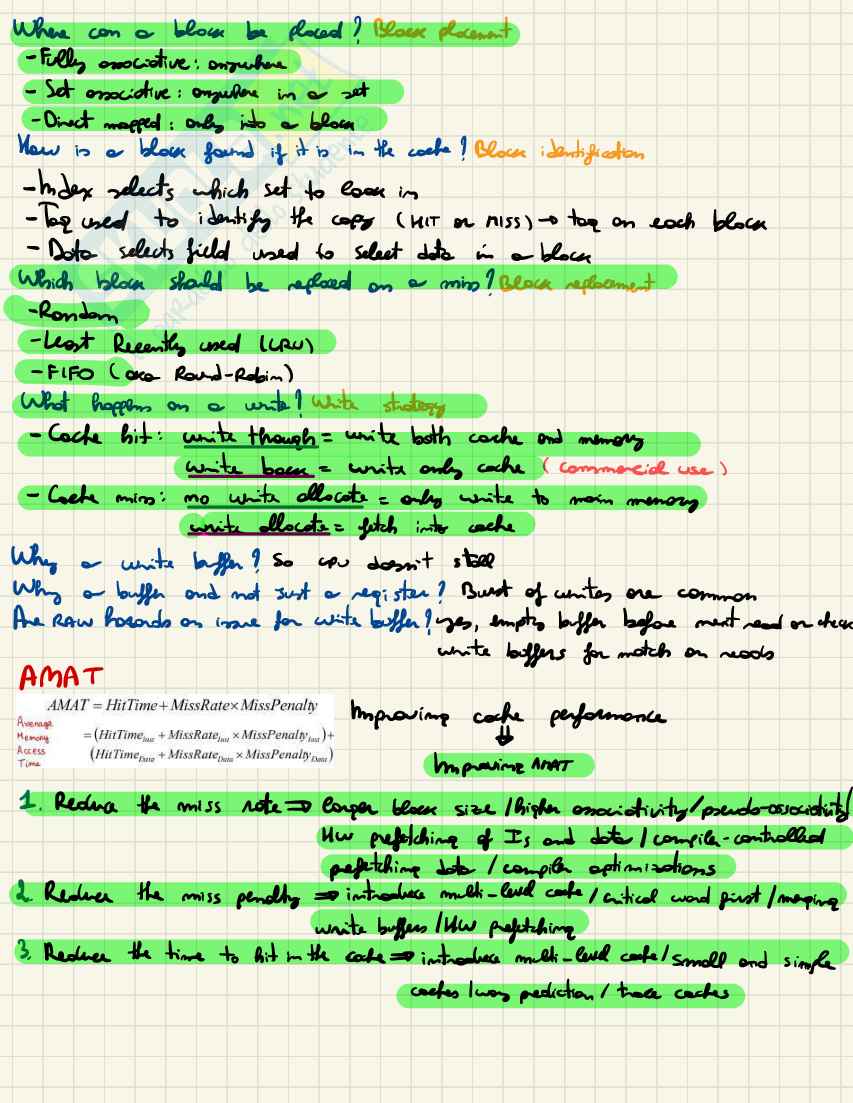 Where can a block be placed? Block placement
- Fully associative: anywhere
- Set associative: anywhere in a set
- Direct mapped: only into a block
How is a block found if it is in the cache? Block identification
- Index selects which set to look in
- Tag used to identify the copy (HIT or MISS) → tag on each block
- Data selects field used to select data in a block
Which block should be replaced on a miss? Block replacement
- Random
- Least Recently used (LRU)
- FIFO (aka Round-Robin)
What happens on a write? Write strategy
- Cache hit: write though = write both cache and memory
write back = write only cache (commercial use)
- Cache miss: no write allocate = only write to main memory
write allocate = fetch into cache
Why a write buffer? So CPU doesn't stall
Why a buffer and not just a register? Burst of writes are common
Are RAW hazards an issue for write buffer? yes, empty buffer before next read or check
write buffers for match on reads
AMAT
AMAT = HitTime + MissRate × MissPenalty
= (HitTime_Inst + MissRate_Inst × MissPenalty_Inst) +
(HitTime_Data + MissRate_Data × MissPenalty_Data)
Average
Memory
Access
Time
Improving cache performance
⇓
Improving AMAT
1. Reduce the miss rate ⇒ larger block size / higher associativity / pseudo-associativity /
HW prefetching of Is and data / compiler-controlled
prefetching data / compiler optimizations
2. Reduce the miss penalty ⇒ introduce multi-level cache / critical word first / merging
write buffers / HW prefetching
3. Reduce the time to hit in the cache ⇒ introduce multi-level cache / small and simple
caches / way prediction / trace caches